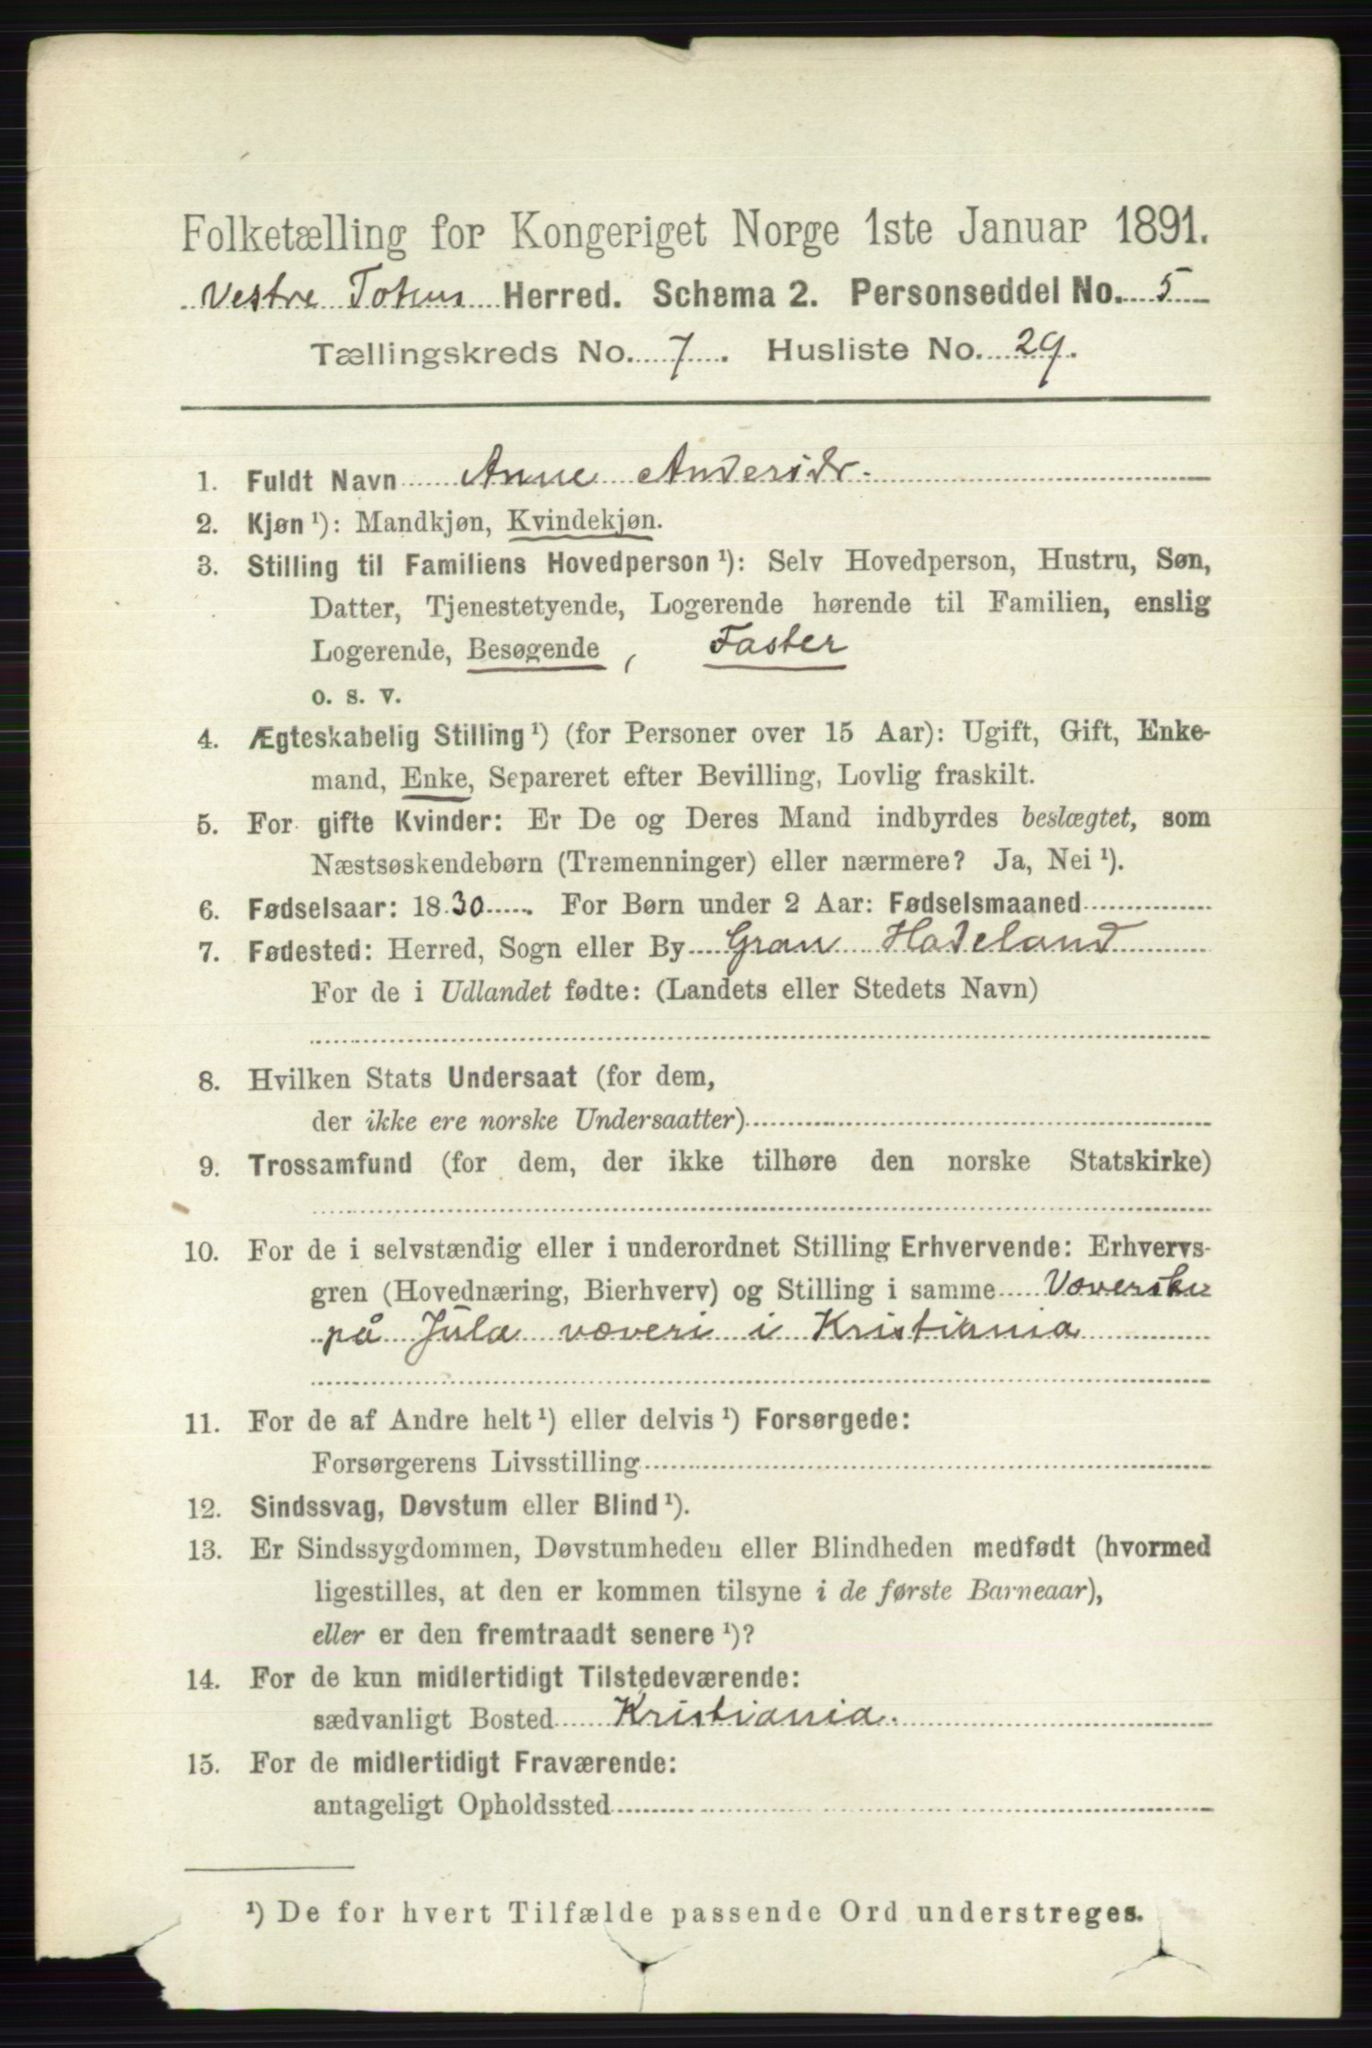 Folketælling for Kongeriget Norge 1ste Januar 1891.
Vestre Toten Herred. Schema 2. Personseddel No. 5
Tællingskreds No. 7. Husliste No. 29.
1. Fuldt Navn Anne Andersdr.
2. Kjøn ¹): Mandkjøn, Kvindekjøn.
3. Stilling til Familiens Hovedperson ¹): Selv Hovedperson, Hustru, Søn,
Datter, Tjenestetyende, Logerende hørende til Familien, enslig
Logerende, Besøgende, Faster
o. s. v.
4. Ægteskabelig Stilling ¹) (for Personer over 15 Aar): Ugift, Gift, Enke-
mand, Enke, Separeret efter Bevilling, Lovlig fraskilt.
5. For gifte Kvinder: Er De og Deres Mand indbyrdes beslægtet, som
Næstsøskendebørn (Tremenninger) eller nærmere? Ja, Nei ¹).
6. Fødselsaar: 1830. For Børn under 2 Aar: Fødselsmaaned
7. Fødested: Herred, Sogn eller By Gran Hadeland
For de i Udlandet fødte: (Landets eller Stedets Navn)
8. Hvilken Stats Undersaat (for dem,
der ikke ere norske Undersaatter)
9. Trossamfund (for dem, der ikke tilhøre den norske Statskirke)
10. For de i selvstændig eller i underordnet Stilling Erhvervende: Erhvervs-
gren (Hovednæring, Bierhverv) og Stilling i samme Væverske
på Jula væveri i Kristiania
11. For de af Andre helt ¹) eller delvis ¹) Forsørgede:
Forsørgerens Livsstilling
12. Sindssvag, Døvstum eller Blind ¹).
13. Er Sindssygdommen, Døvstumheden eller Blindheden medfødt (hvormed
ligestilles, at den er kommen tilsyne i de første Barneaar),
eller er den fremtraadt senere ¹)?
14. For de kun midlertidigt Tilstedeværende:
sædvanligt Bosted Kristiania.
15. For de midlertidigt Fraværende:
antageligt Opholdssted
¹) De for hvert Tilfælde passende Ord understreges.